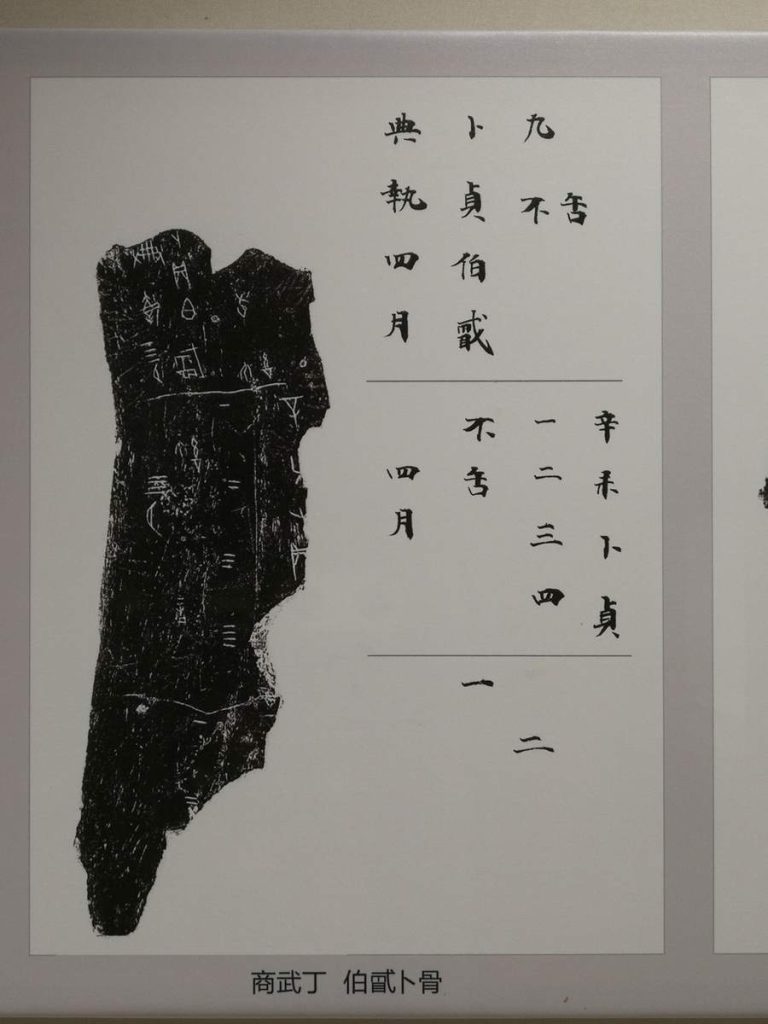 九不
卜貞伯
典執四月
辛未卜貞
一二三四
不
四月
二
一
商武丁 伯卜骨